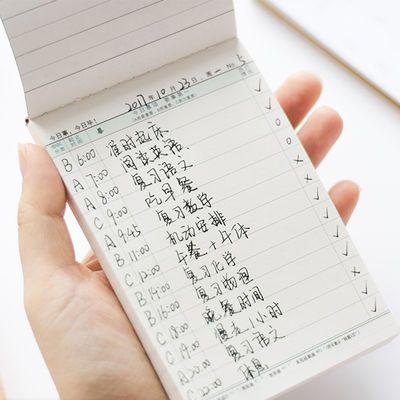 2017年10月23日，周一 No 5
今日事，今日毕！
B 6:00 准时起床
A 7:00 阅读英语
A 8:00 复习语文
C 9:00 吃早餐
A 9:45 复习数学
B 11:00 机动安排
C 12:00 午餐+午休
B 14:00 复习化学
B 16:00 复习物理
C 18:00 晚餐时间
C 19:00 1小时
A 20:00 复习语文
C 22:00 休息